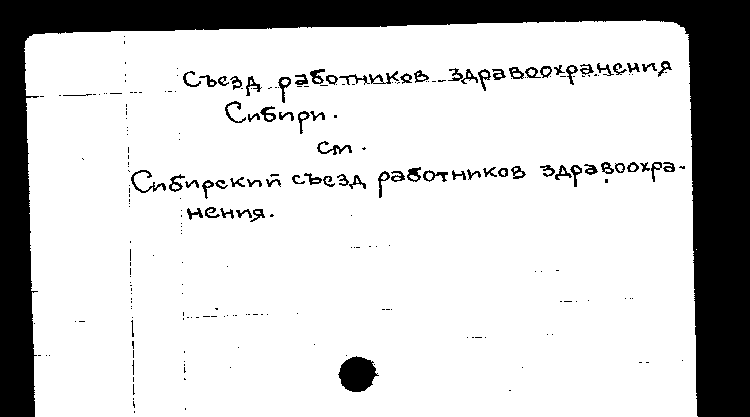 Съезд работников здравоохранения
Сибири.
см.
Сибирский съезд работников здравоохра-
нения.